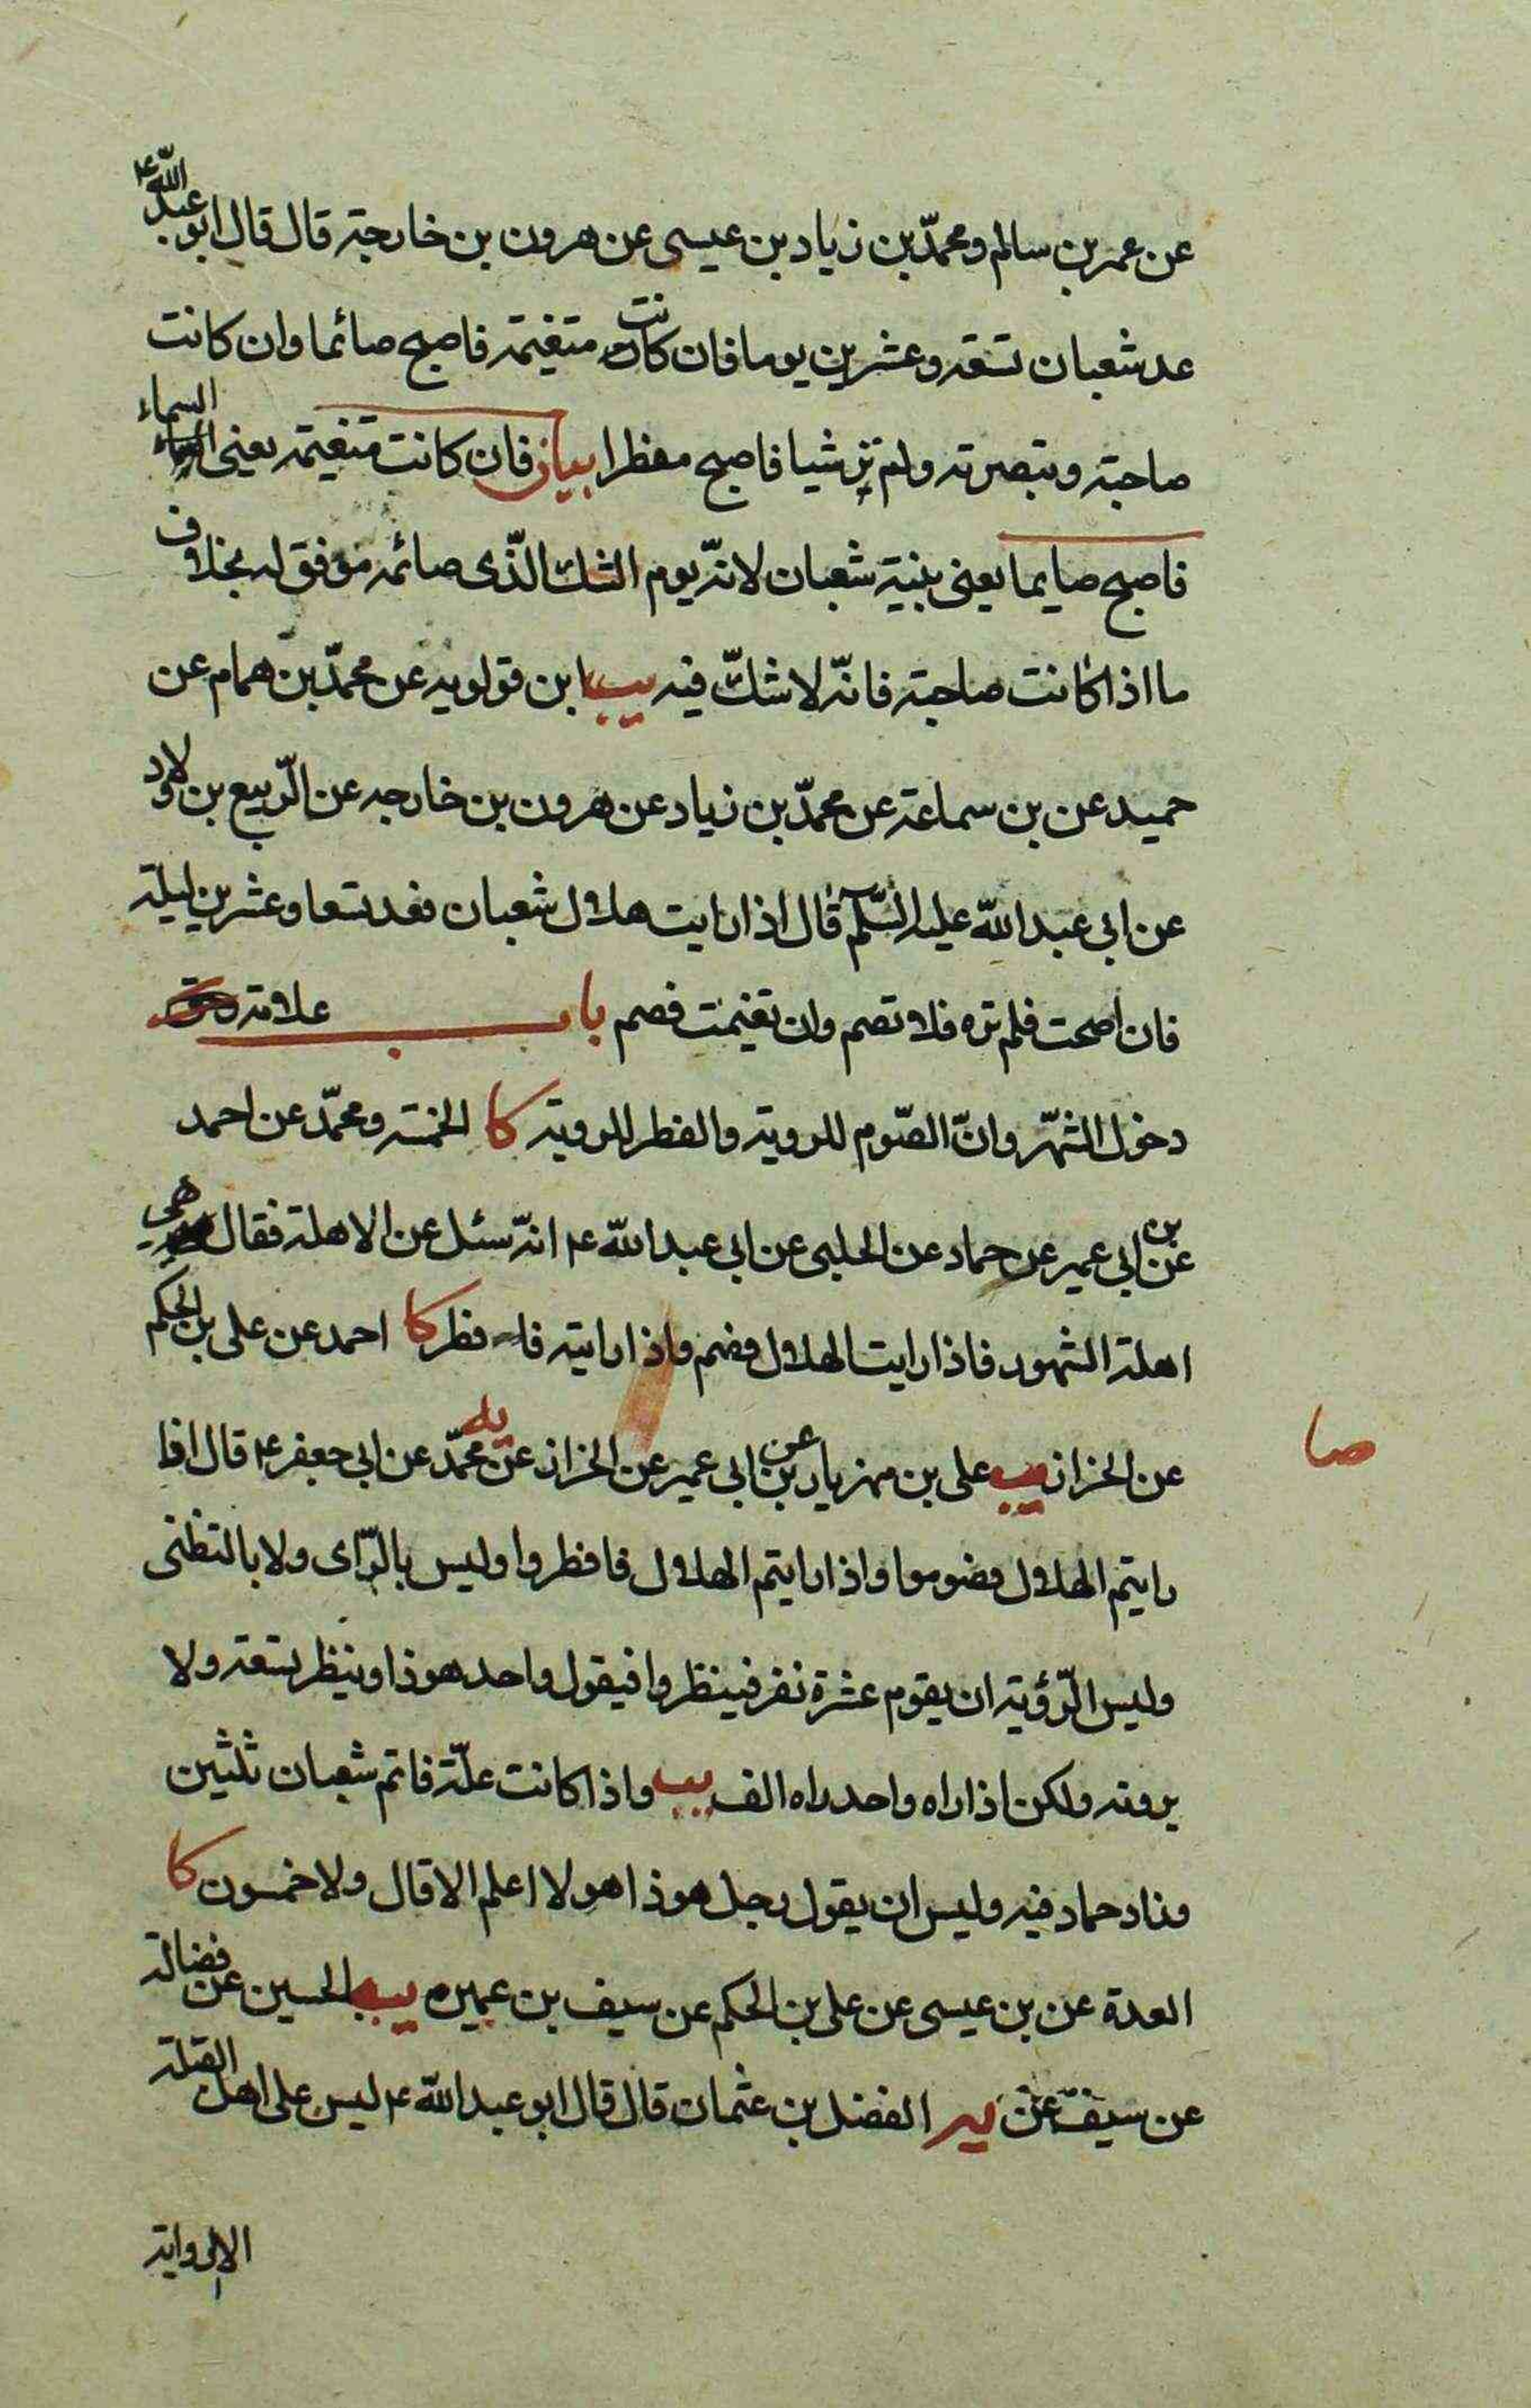 عن عمر بن سالم ومحمّد بن زياد بن عيسى عن هرون بن خارجة قال قال ابو عبد اللّه ع
عد شعبان تسعة وعشرين يوما فان كانت متغيمة فاصبح صائما وان كانت
صاحية وتبصرته ولم تر شيا فاصبح مفطرا بيان فان كانت متغيمة يعنى السماء
فاصبح صايما يعنى بنية شعبان لانّه يوم الشك الّذى صائمه موفق له بخلاف
ما اذا كانت صاحية فانّه لا شكّ فيه يب ابن قولويه عن محمّد بن همام عن
حميد عن بن سماعة عن محمّد بن زياد عن هرون بن خارجه عن الرّبيع بن ولاد
عن ابى عبد اللّه عليه السّلم قال اذا رايت هلال شعبان فعد تسعا وعشرين ليلة
فان اصحت فلم تره فلا تصم وان تغيمت فصم باب علامة
دخول الشّهر وانّ الصّوم للروية والفطر للروية كا الخمسة ومحمّد عن احمد
عن بن ابى عمير عن حماد عن الحلبى عن ابى عبد اللّه ع انّه سئل عن الاهلة فقال هى
اهلة الشهور فاذا رايت الهلال فصم واذا رايته فا فطر كا احمد عن على بن الحكم
عن الخزاز يب على بن مهزيار عن بن ابى عمير عن الخزاز عن محمّد عن ابى جعفر ع قال اذا
صا
رايتم الهلال فصوموا واذا رايتم الهلال فافطروا وليس بالرّاى ولا بالتظنى
وليس الرّؤية ان يقوم عشرة نفر فينظروا فيقول واحد هوذا وينظر تسعة ولا
يرونه ولكن اذا راه واحد راه الف يب واذا كانت علّة فاتم شعبان ثلثين
وزاد حماد فيه وليس ان يقول رجل هوذا هو لا اعلم الا قال ولا خمسون كا
العدة عن بن عيسى عن على بن الحكم عن سيف بن عميرة يب الحسين عن فضالة
عن سيف عن الفضل بن عثمان قال قال ابو عبد اللّه ع ليس على اهل القبلة
الا الرواية